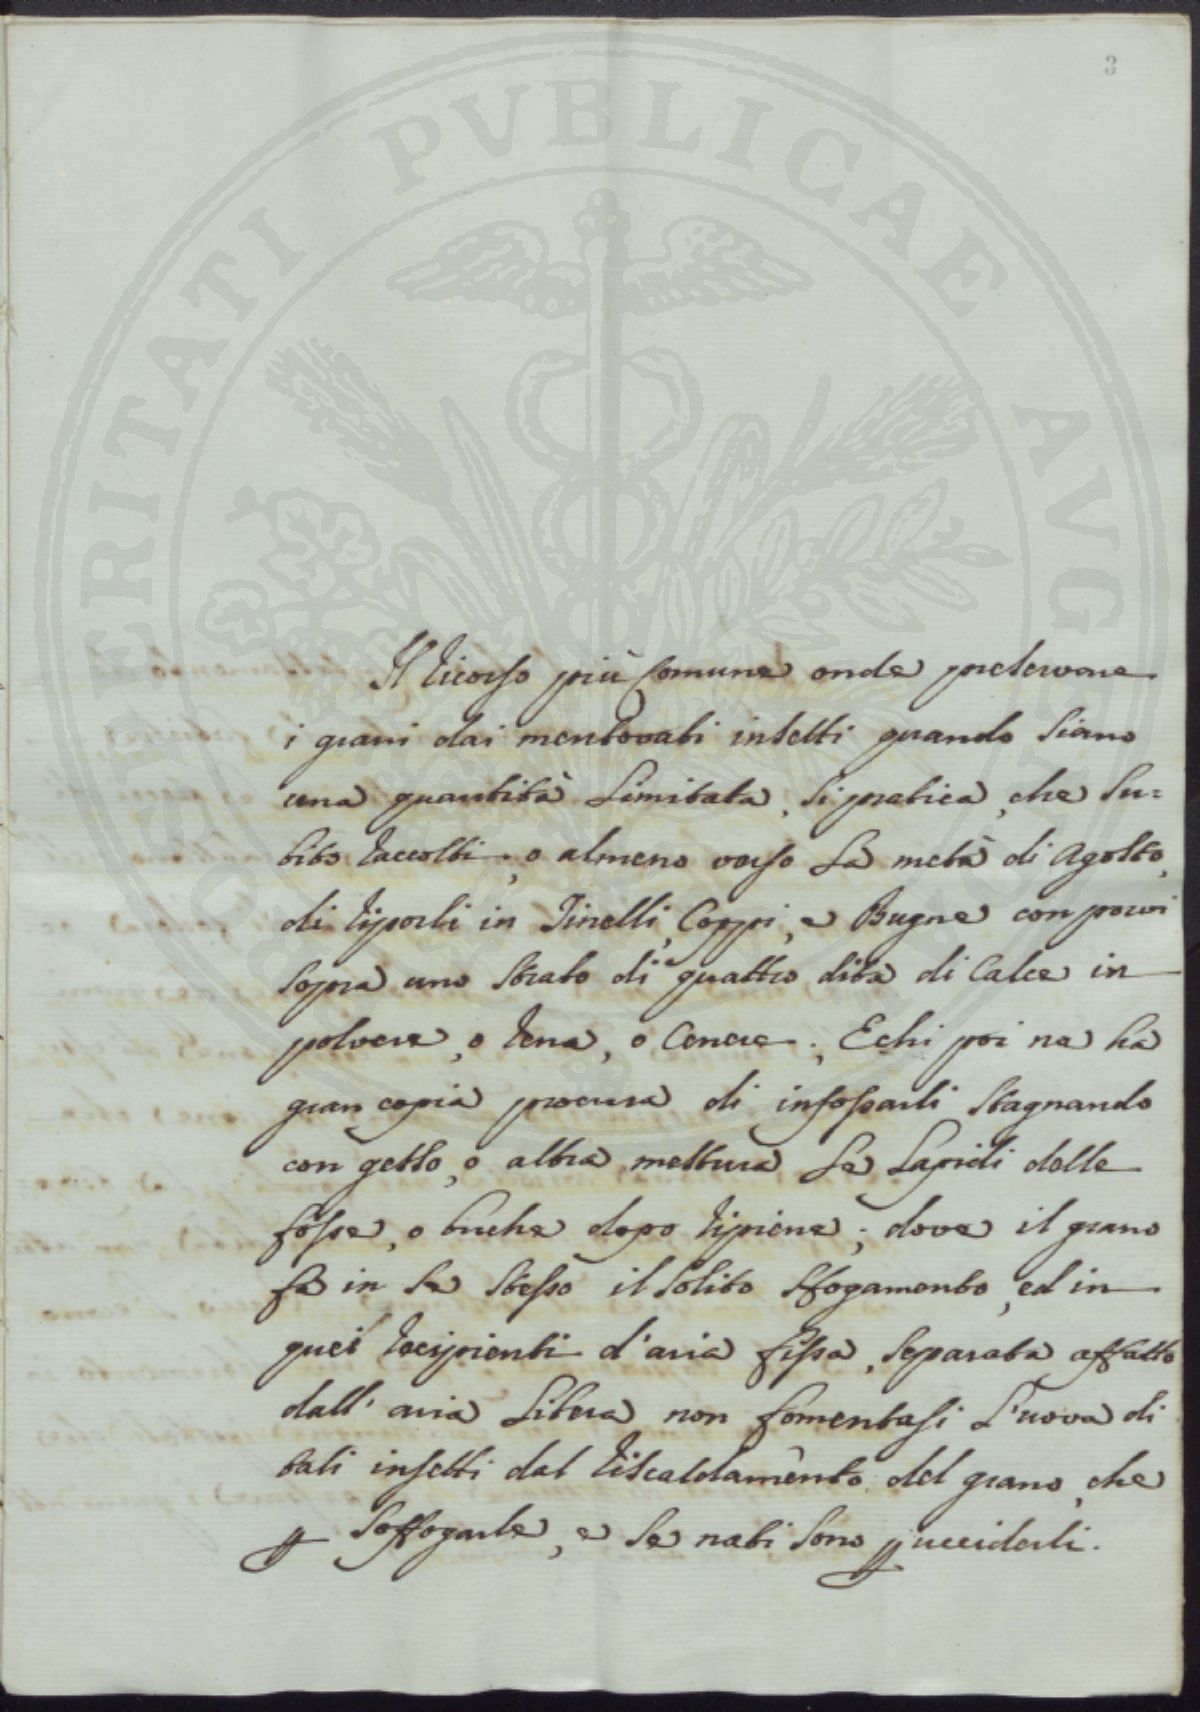 3
PROSPERITATI PVBLICAE AVGENDAE
Il ricorso più comune onde preservare
i grani dai mentovati insetti quando siano
una quantità limitata, si pratica, che su=
bito raccolti, o almeno verso la metà di Agosto,
di riporli in Tinelli, Coppi, e Bugne con porvi
sopra uno strato di quattro dita di Calce in
polvere, o rena, o Cenere; E chi poi ne ha
gran copia procura di infossarli stagnando
con getto, o altra mettura le lapidi delle
fosse, o buche dopo ripiene; dove il grano
fa in se stesso il solito sfogamento, ed in
quei recipienti d'aria fissa, separata affatto
dall'aria libera non fomentasi l'uova di
tali insetti dal riscaldamento del grano, che
p soffogarle, e se nati sono p ucciderli.